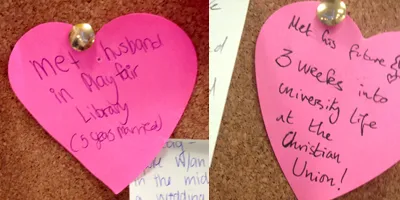 met husband
in Playfair
Library
(5 years married)
in the mid
a wedding
Met his future
3 weeks into
university life
at the
Christian
Union!